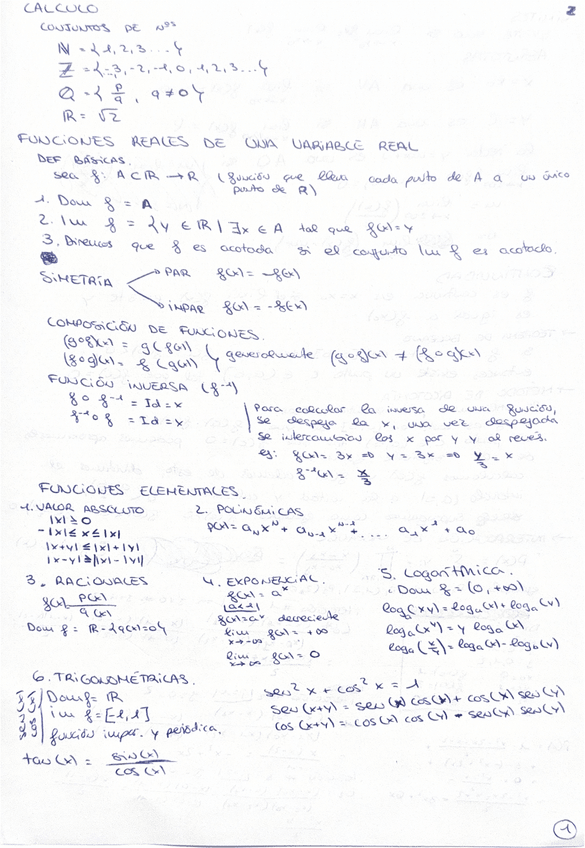 CALCULO
2
CONJUNTOS DE Nºs
N = {1, 2, 3 ... }
Z = {-3, -2, -1, 0, 1, 2, 3 ... }
Q = { p/q , q ≠ 0 }
R = √2
FUNCIONES REALES DE UNA VARIABLE REAL
DEF BÁSICAS.
sea f: A ⊂ R → R (función que lleva cada punto de A a un único
punto de R)
1. Dom f = A
2. Im f = {y ∈ R | ∃x ∈ A tal que f(x) = y
3. Diremos que f es acotada si el conjunto Im f es acotado.
SIMETRÍA
PAR f(x) = -f(x)
IMPAR f(x) = -f(x)
COMPOSICIÓN DE FUNCIONES.
(g∘f)(x) = g(f(x))
(f∘g)(x) = f(g(x)) } generalmente (g∘f)(x) ≠ (f∘g)(x)
FUNCIÓN INVERSA (f⁻¹)
f∘f⁻¹ = Id = x
f⁻¹∘f = Id = x
Para calcular la inversa de una función,
se despeja la x, una vez despejada
se intercambian las x por y y al revés.
ej: f(x) = 3x ⇒ y = 3x ⇒ y/3 = x
f⁻¹(x) = x/3
FUNCIONES ELEMENTALES.
1. VALOR ABSOLUTO
|x| ≥ 0
-|x| ≤ x ≤ |x|
|x+y| ≤ |x| + |y|
|x-y| ≥ ||x| - |y|
2. POLINÓMICAS
p(x) = aₙxᴺ + aₙ₋₁xᴺ⁻¹ + .... a₁x¹ + a₀
3. RACIONALES
f(x) p(x)/q(x)
Dom f = R - {q(x) = 0}
4. EXPONENCIAL.
f(x) = aˣ
a<1
f(x) = aˣ decreciente
lim x→-∞ f(x) = +∞
lim x→∞ f(x) = 0
5. Logarítmica.
Dom f = (0, +∞)
logₐ(xy) = logₐ(x) + logₐ(y)
logₐ(xʸ) = y logₐ(x)
logₐ(x/y) = logₐ(x) - logₐ(y)
6. TRIGONOMÉTRICAS.
sen(x)
cos(x)
Dom f = R
im f = [-1, 1]
función impar. y periódica.
tan(x) = sin(x)/cos(x)
sen² x + cos² x = 1
sen(x+y) = sen(x) cos(y) + cos(x) sen(y)
cos(x+y) = cos(x) cos(y) - sen(x) sen(y)
1